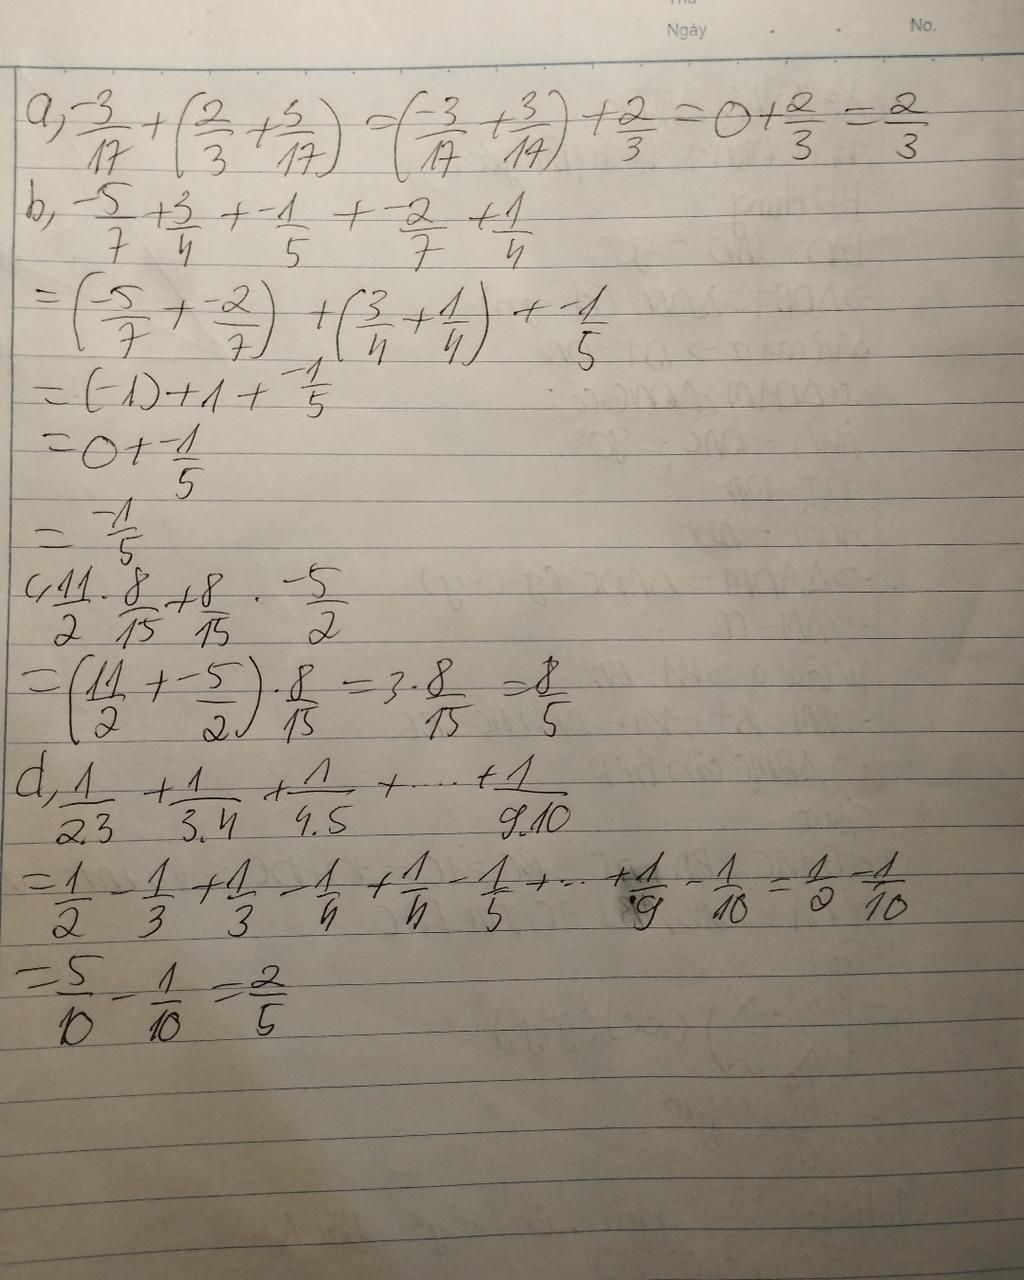 Thứ
Ngày . . No.
a, -3/17 + (2/3 + 3/17) = (-3/17 + 3/17) + 2/3 = 0 + 2/3 = 2/3
b, -5/7 + 3/4 + -1/5 + -2/7 + 1/4
= (-5/7 + -2/7) + (3/4 + 1/4) + -1/5
= (-1) + 1 + -1/5
= 0 + -1/5
= -1/5
c, 11/2 . 8/15 + 8/15 . -5/2
= (11/2 + -5/2) . 8/15 = 3 . 8/15 = 8/5
d, 1/2.3 + 1/3.4 + 1/4.5 + .... + 1/9.10
= 1/2 - 1/3 + 1/3 - 1/4 + 1/4 - 1/5 + ... + 1/9 - 1/10 = 1/2 - 1/10
= 5/10 - 1/10 = 2/5